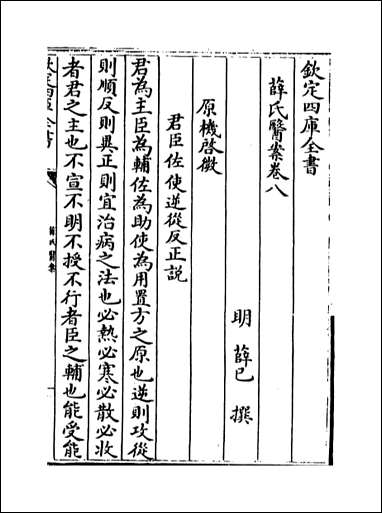 欽定四庫全書
薛氏醫案卷八
明 薛已 撰
原機啓微
君臣佐使逆從反正説
君為主臣為輔佐為助使為用置方之原也逆則攻從
則順反則異正則宜治病之法也必熱必寒必散必收
者君之主也不宣不明不授不行者臣之輔也能受能
欽定四庫全書
薛氏醫案